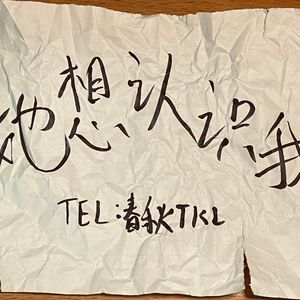 她想认识我
TEL:春秋TKL